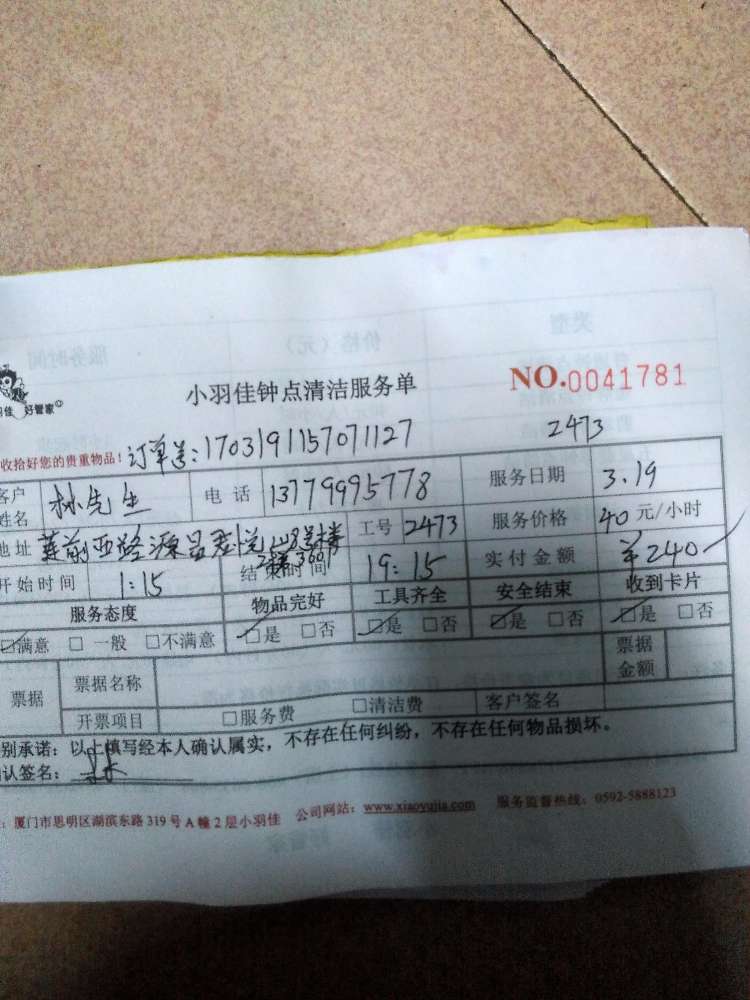 小羽佳钟点清洁服务单
NO.0041781
羽佳 好管家
收拾好您的贵重物品！订单号：1703191157071127
2473
客户姓名 林先生 电话 13779995778 服务日期 3.19
地址 莲前西路源昌君悦山 工号 2473 服务价格 40元/小时
开始时间 1:15 结束时间 19:15 实付金额 ¥240
服务态度 物品完好 工具齐全 安全结束 收到卡片
☑满意 □一般 □不满意 ☑是 □否 ☑是 □否 ☑是 □否 ☑是 □否
票据 票据名称 票据金额
开票项目 □服务费 □清洁费 客户签名
别承诺：以上填写经本人确认属实，不存在任何纠纷，不存在任何物品损坏。
认签名： 林
：厦门市思明区湖滨东路319号A幢2层小羽佳 公司网站：www.xiaoyujia.com 服务监督热线：0592-5888123
类型
价格（元）
服务时间